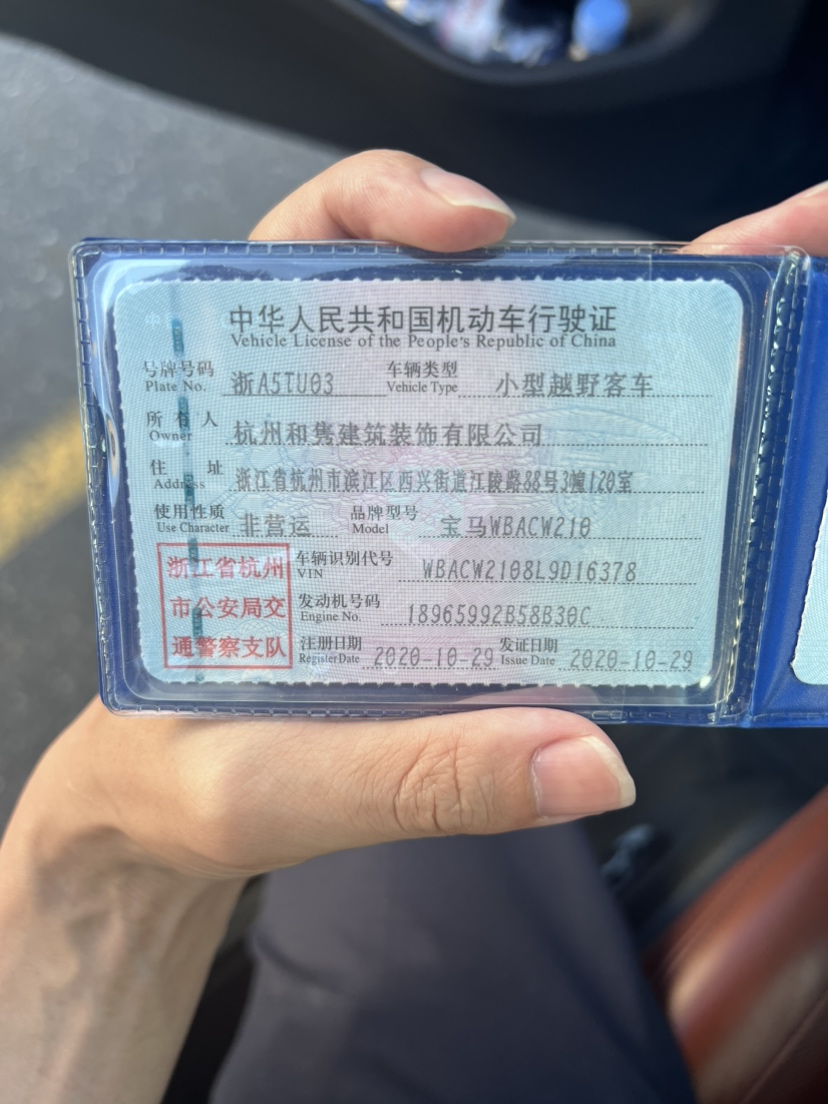 中华人民共和国机动车行驶证
Vehicle License of the People's Republic of China
号牌号码 浙A5TU03 车辆类型 小型越野客车
Plate No. Vehicle Type
所有人 杭州和隽建筑装饰有限公司
Owner
住址 浙江省杭州市滨江区西兴街道江陵路88号3幢120室
Address
使用性质 非营运 品牌型号 宝马WBACW210
Use Character Model
浙江省杭州
市公安局交
通警察支队
车辆识别代号 WBACW2108L9D16378
VIN
发动机号码 18965992B58B30C
Engine No.
注册日期 2020-10-29 发证日期 2020-10-29
Register Date Issue Date